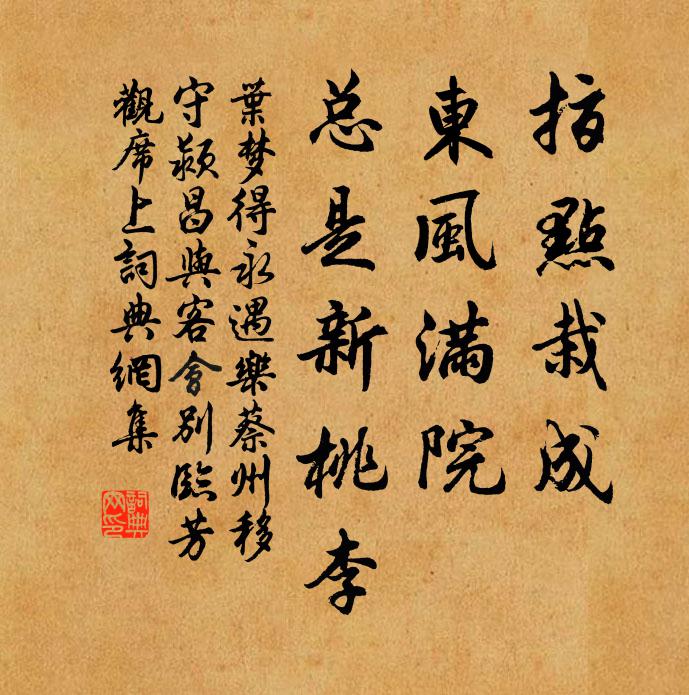 指點栽成
東風滿院
总是新桃李
葉梦得永遇樂蔡州移
守颍昌與客會别臨芳
觀席上詞典網集
詞典網印